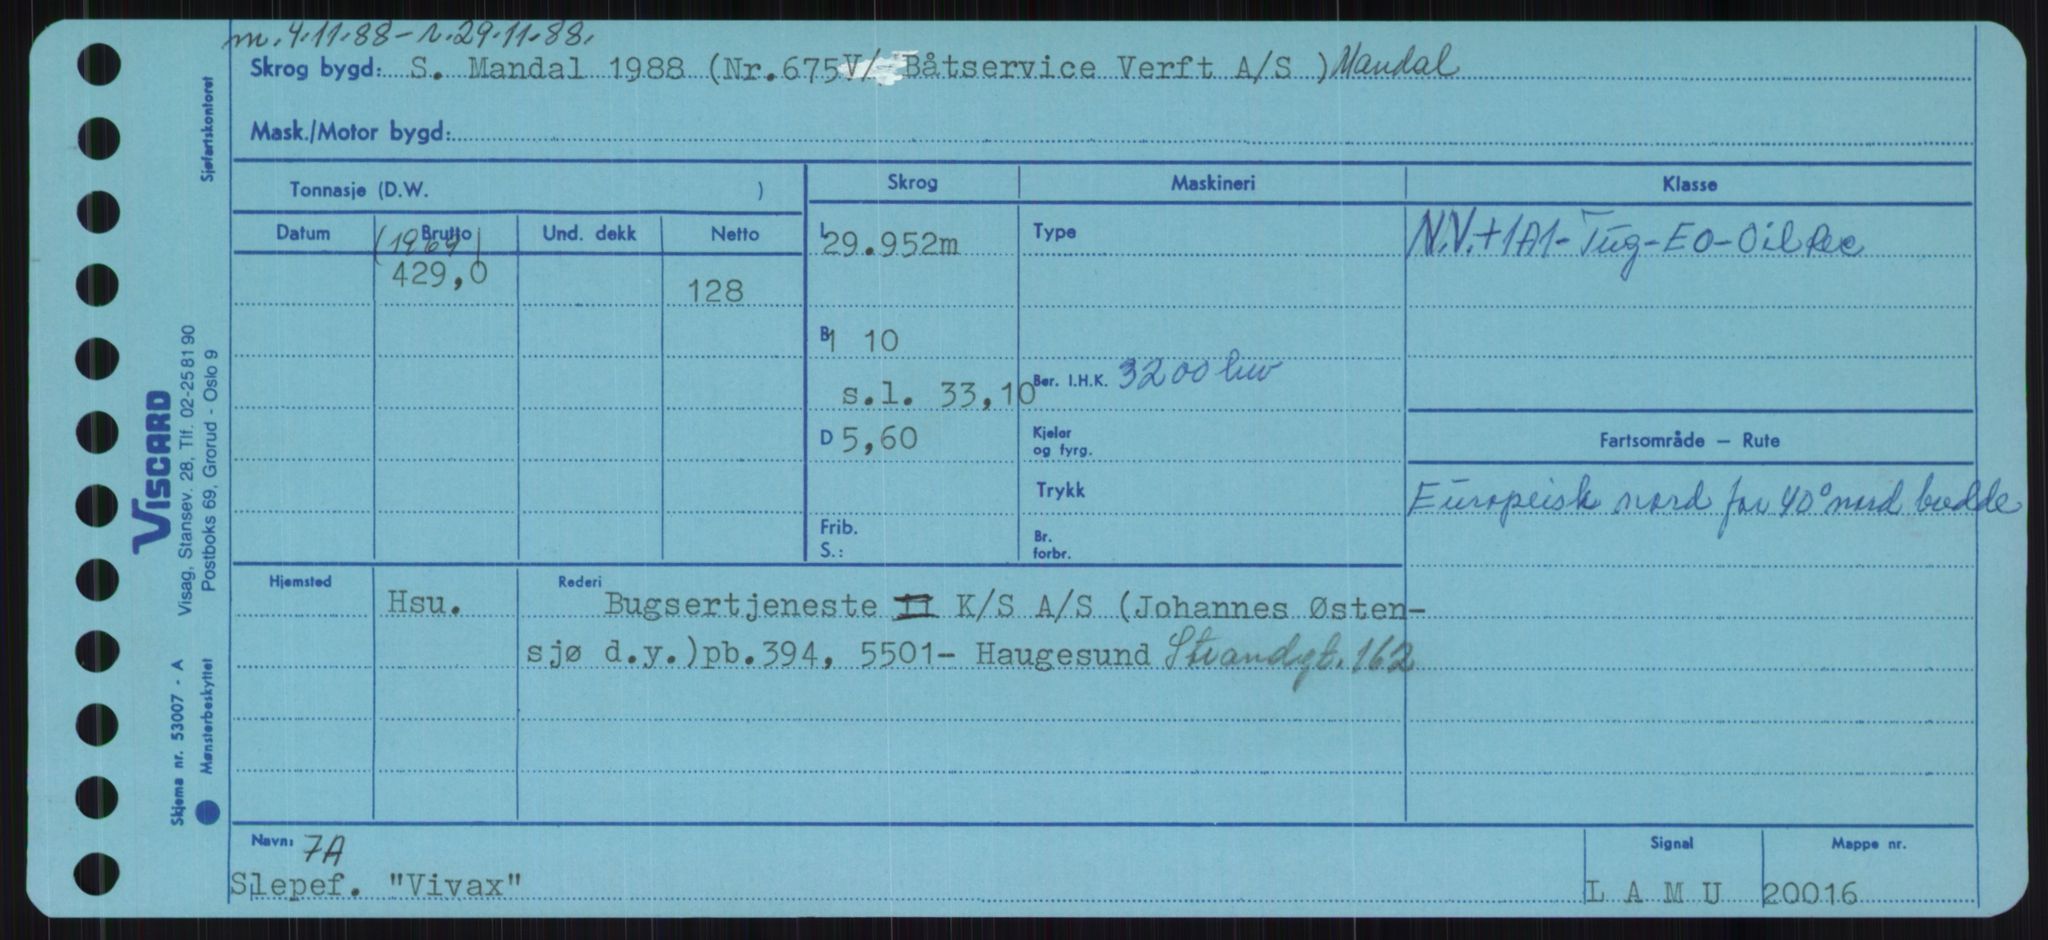 m. 4.11.88 - r. 29.11.88.
Skrog bygd: S. Mandal 1988 (Nr.675 V/ Båtservice Verft A/S ) Mandal
Mask./Motor bygd:
Sjøfartskontoret
Tonnasje (D.W. )
Skrog
Maskineri
Klasse
Datum
Brutto
Und. dekk
Netto
(1969)
429,0
128
L
29.952m
B
1 10
s.l. 33,10
D 5,60
Frib.
S.:
Type
Ber. I.H.K. 3200 bhv
Kjeler
og fyrg.
Trykk
Br.
forbr.
N.V. + 1A1 - Tug - EO - Oil Rec
Fartsområde — Rute
Europeisk nord for 40° nord bredde
Hjemsted
Rederi
Hsu.
Bugsertjeneste II K/S A/S (Johannes Østen-
sjø d.y.)pb.394, 5501- Haugesund Strandgt. 162
VISCARD
Visag, Stansev. 28, Tlf. 02-25 81 90
Postboks 69, Grorud - Oslo 9
Skjema nr. 53007 - A
Mønsterbeskyttet
Navn: 7A
Slepef. "Vivax"
Signal
L A M U
Mappe nr.
20016